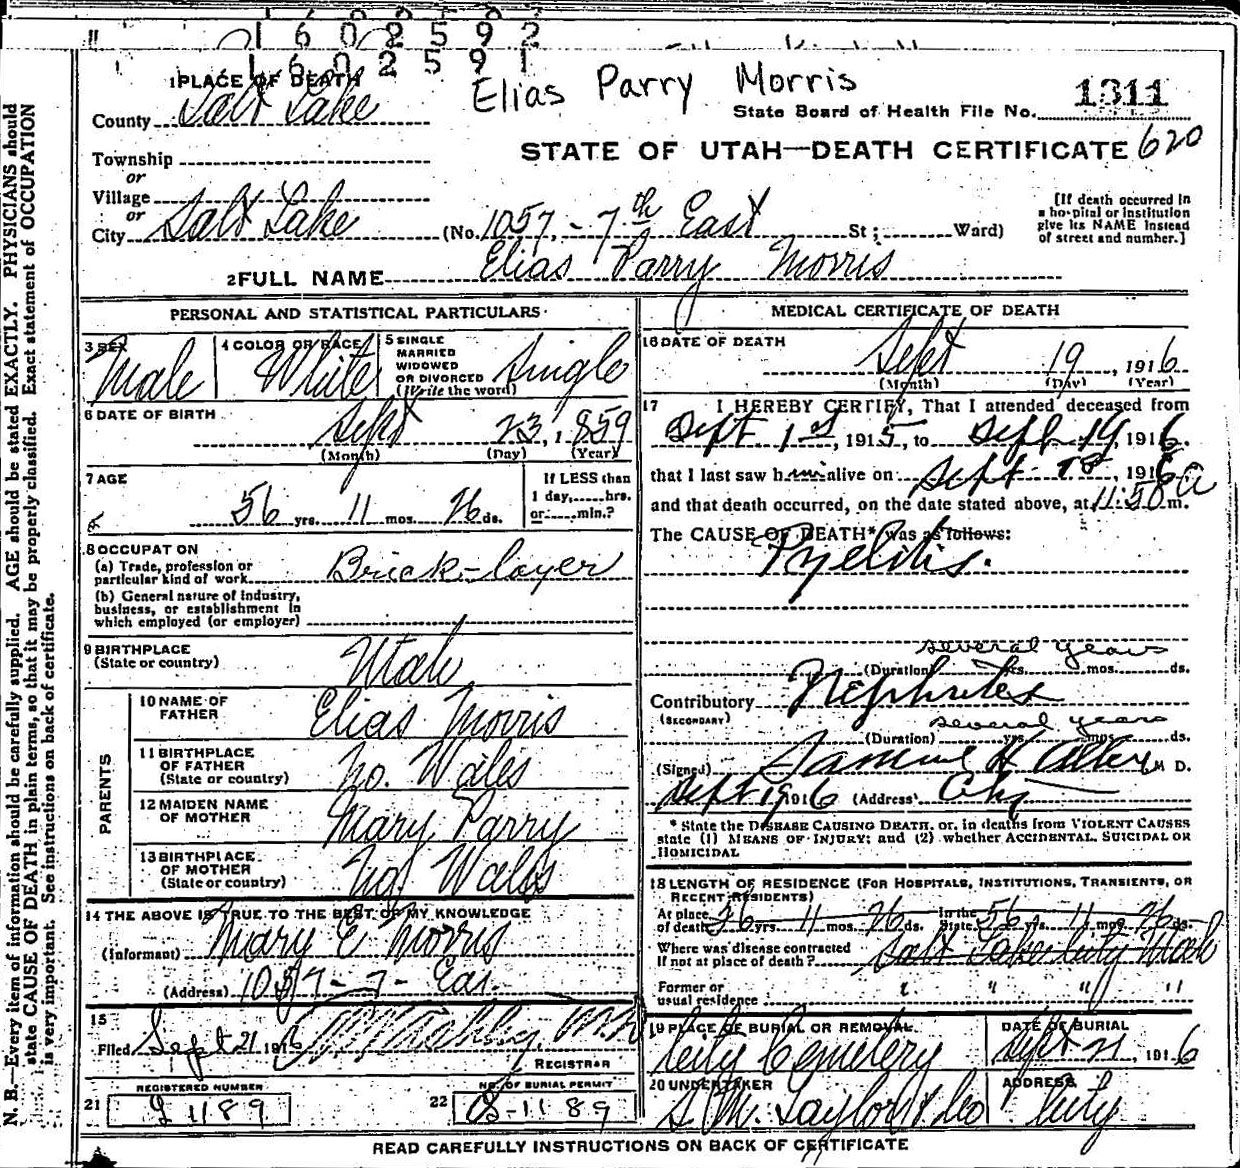 1 6 0 2 5 9 2
1 6 0 2 5 9 1
1 PLACE OF DEATH
Elias Parry Morris
State Board of Health File No. 1311
County Salt Lake
STATE OF UTAH—DEATH CERTIFICATE 620
Township
or
Village
or
City Salt Lake (No. 1057 - 7th East St; Ward)
[If death occurred in
a hospital or institution
give its NAME instead
of street and number.]
2 FULL NAME Elias Parry Morris
PERSONAL AND STATISTICAL PARTICULARS
3 SEX
Male
4 COLOR OR RACE
White
5 SINGLE
MARRIED
WIDOWED
OR DIVORCED
(Write the word)
Single
6 DATE OF BIRTH
Sept 23, 1859
(Month) (Day) (Year)
7 AGE
56 yrs. 11 mos. 26 ds.
If LESS than
1 day,......hrs.
or......min.?
8 OCCUPATION
(a) Trade, profession or
particular kind of work Brick-layer
(b) General nature of industry,
business, or establishment in
which employed (or employer)
9 BIRTHPLACE
(State or country) Utah
PARENTS
10 NAME OF
FATHER Elias Morris
11 BIRTHPLACE
OF FATHER
(State or country) No. Wales
12 MAIDEN NAME
OF MOTHER Mary Parry
13 BIRTHPLACE
OF MOTHER
(State or country) No. Wales
14 THE ABOVE IS TRUE TO THE BEST OF MY KNOWLEDGE
(Informant) Mary E Morris
(Address) 1057 - 7 - East
15
Filed Sept 21 1916
REGISTRAR
REGISTERED NUMBER
21 1189
NO. OF BURIAL PERMIT
22 B-1189
MEDICAL CERTIFICATE OF DEATH
16 DATE OF DEATH
Sept 19, 1916
(Month) (Day) (Year)
17 I HEREBY CERTIFY, That I attended deceased from
Sept 1st, 1915, to Sept 19, 1916.
that I last saw him alive on Sept 18, 1916
and that death occurred, on the date stated above, at 11:50 a m.
The CAUSE OF DEATH* was as follows:
Pyelitis.
several years
(Duration) yrs. mos. ds.
Contributory Nephritis
(SECONDARY)
several years
(Duration) yrs. mos. ds.
(Signed) Samuel H Allen M D.
Sept 19 1916 (Address) City
* State the DISEASE CAUSING DEATH, or, in deaths from VIOLENT CAUSES
state (1) MEANS OF INJURY; and (2) whether ACCIDENTAL, SUICIDAL OR
HOMICIDAL
18 LENGTH OF RESIDENCE (FOR HOSPITALS, INSTITUTIONS, TRANSIENTS, OR
RECENT RESIDENTS)
At place
of death 56 yrs. 11 mos. 26 ds. In the
State 56 yrs. 11 mos. 26 ds.
Where was disease contracted
If not at place of death? Salt Lake City Utah
Former or
usual residence " " " "
19 PLACE OF BURIAL OR REMOVAL
City Cemetery
DATE OF BURIAL
Sept 21, 1916
20 UNDERTAKER
S. M. Taylor & Co
ADDRESS
City
READ CAREFULLY INSTRUCTIONS ON BACK OF CERTIFICATE
N. B.—Every item of information should be carefully supplied. AGE should be stated EXACTLY. PHYSICIANS should
state CAUSE OF DEATH in plain terms, so that it may be properly classified. Exact statement of OCCUPATION
is very important. See instructions on back of certificate.